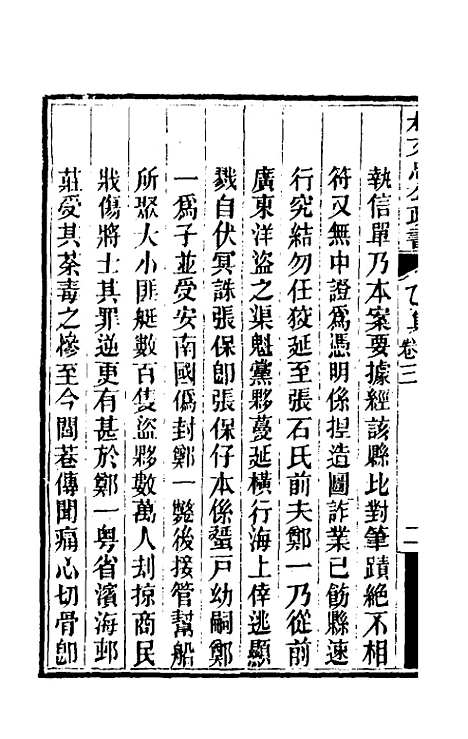 林文忠公政書 乙集 卷三 二
執信單乃本案要據經該縣比對筆蹟絕不相
符又無中證爲憑明係捏造圖詐業已飭縣速
行究結勿任狡延至張石氏前夫鄭一乃從前
廣東洋盜之渠魁黨夥蔓延橫行海上倖逃顯
戮自伏冥誅張保卽張保仔本係蜑戸幼嗣鄭
一爲子並受安南國僞封鄭一斃後接管幫船
所聚大小匪艇數百隻盜夥數萬人刦掠商民
戕傷將士其罪逆更有甚於鄭一粤省濱海邨
莊受其荼毒之慘至今閭巷傳聞痛心切骨卽